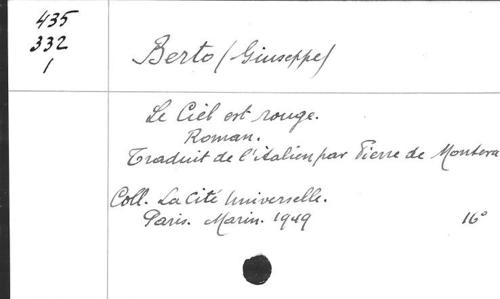 435
332
1
Berto (Giuseppe)
Le Ciel est rouge.
Roman.
Traduit de l'italien par Pierre de Montera
Coll. La Cité Universelle.
Paris. Marin. 1949 16°